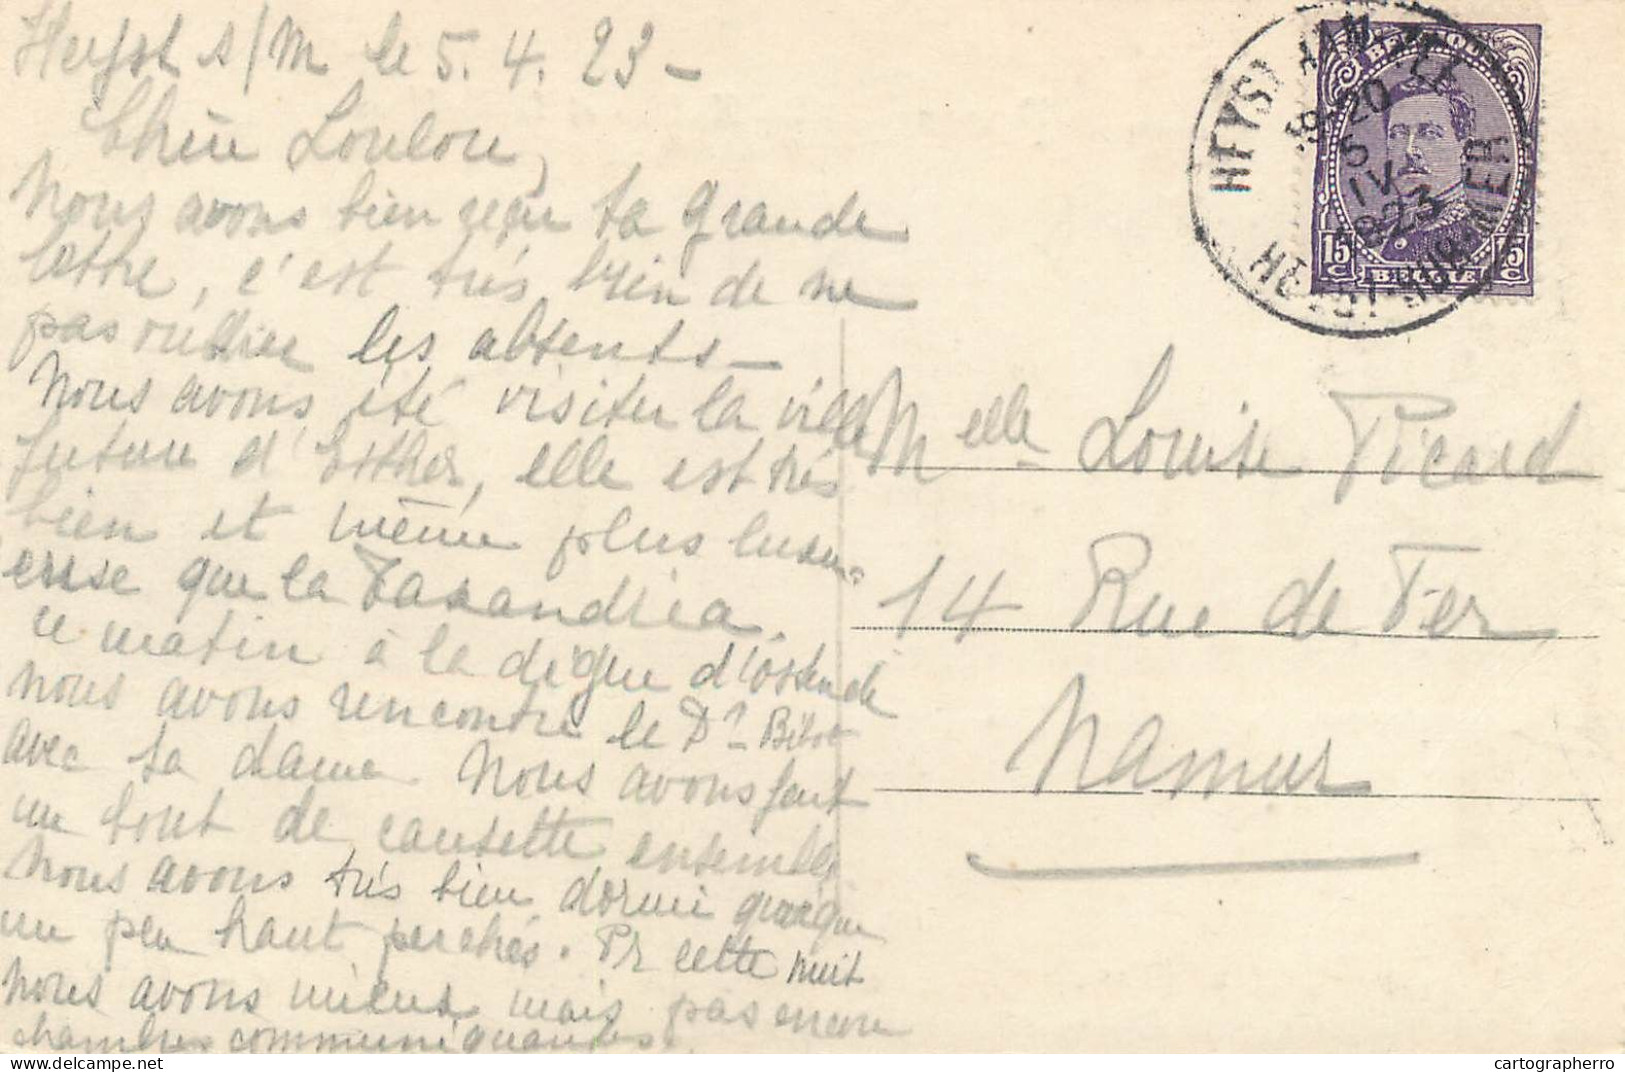 Heyst s/M le 5.4.23 -
Chère Loulou,
Nous avons bien reçu ta grande
lettre, c'est très bien de ne
pas oublier les absents -
Nous avons été visiter la villa
future d'Esther, elle est très
bien et même plus luxu-
euse que la Taxandria.
ce matin à la digue d'Ostende
nous avons rencontré le Dr Bibot
avec sa dame. Nous avons fait
un bout de causette ensemble
Nous avons très bien dormi quoique
un peu haut perchés. Pr cette nuit
nous avons mieux mais pas encore
chambres communiquantes.
Melle Louise Picard
14 Rue de Fer
Namur
BELGIQUE
15 C 15 C
BELGIE
HEYST AAN ZEE
20
5
IV
1923
HEYST-SUR-MER
cartographerro